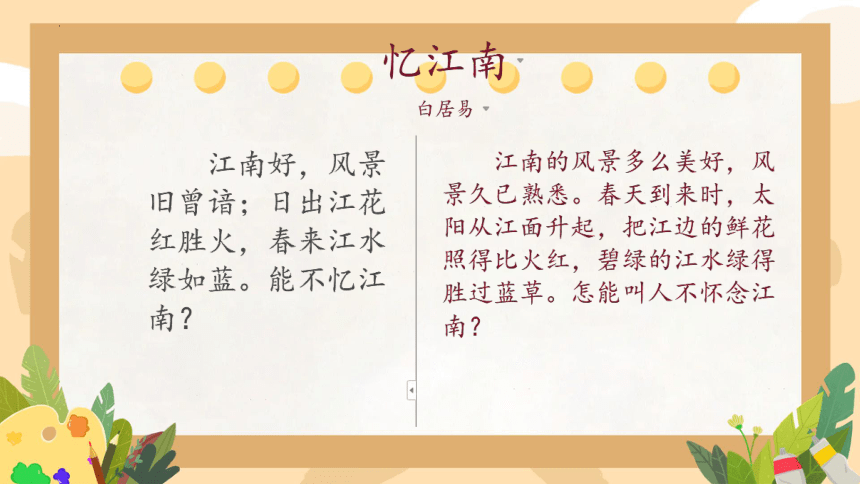 忆江南
白居易
江南好，风景
旧曾谙；日出江花
红胜火，春来江水
绿如蓝。能不忆江
南？
江南的风景多么美好，风
景久已熟悉。春天到来时，太
阳从江面升起，把江边的鲜花
照得比火红，碧绿的江水绿得
胜过蓝草。怎能叫人不怀念江
南？